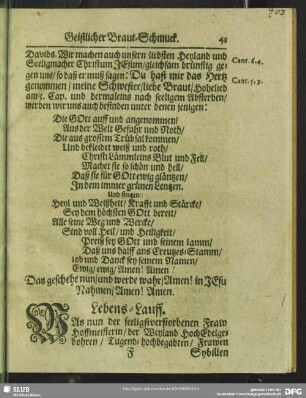 Geistlicher Braut-Schmuck. 41
Davids. Wir machen auch unsern liebsten Heyland und
Seeligmacher Christum JEsum/gleichsam brünstig ge
gen uns/so daß er muß sagen: Du hast mir das Hertz
genommen/meine Schwester/liebe Braut/Hohelied
am 5. Cap. und dermaleins nach seeligem Absterben/
werden wir uns auch befinden unter denen jenigen:
Cant. 6.4.
Cant. 5,2.
Die GOtt auff und angenommen/
Aus der Welt Gefahr und Noth/
Die aus grossem Trübsal kommen/
Und bekleidet weiß und roth/
Christi Lämmleins Blut und Fell/
Machet sie so schön und hell/
Daß sie für GOtt ewig gläntzen/
In dem immer grünen Lentzen.
Und singen:
Heyl und Weißheit/Krafft und Stärcke/
Sey dem höchsten GOtt bereit/
Alle seine Weg und Wercke/
Sind voll Heil/und Heiligkeit/
Preiß sey GOtt und seinem Lamm/
Daß uns halff am Creutzes-Stamm/
Lob und Danck sey seinem Namen/
Ewig/ewig/Amen! Amen!
Das geschehe nun/und werde wahr/Amen! in JEsu
Nahmen/Amen! Amen.
Lebens-Lauff.
WAs nun der seeligstverstorbenen Fraw
Hoffmeisterin/der Weyland HochEdelge-
bohren/Tugend-hochbegabten/Frawen
F Sybillen
SLUB